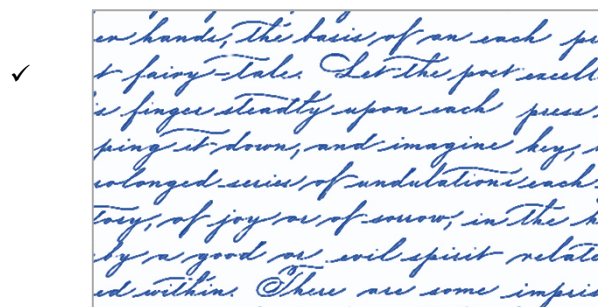 er hands, the basis of an each pr
t fairy-tale. Let the poet excell
is finger steadly upon each press
ping it down, and imagine key,
rolonged series of undulations each
tory, of joy or of sorrow, in the h
by a good or evil spirit relate
ed within. There are some impris